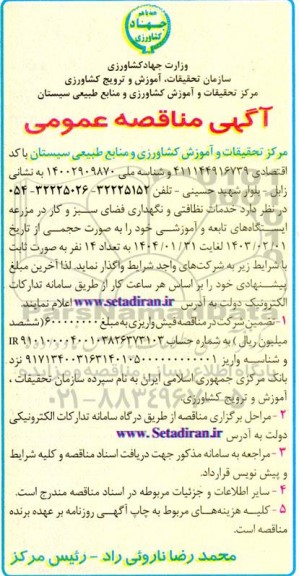 همه با هم
جهاد
کشاورزی
وزارت جهادکشاورزی
سازمان تحقیقات، آموزش و ترویج کشاورزی
مرکز تحقیقات و آموزش کشاورزی و منابع طبیعی سیستان
آگهی مناقصه عمومی
مرکز تحقیقات و آموزش کشاورزی و منابع طبیعی سیستان با کد
اقتصادی ۴۱۱۱۴۴۹۱۶۷۳۹ و شناسه ملی ۱۴۰۰۲۹۰۹۸۷۰ به نشانی
زابل - بلوار شهید حسینی - تلفن ۳۲۲۲۵۱۵۲ -۳۲۲۲۵۰۲۶ -۰۵۴
در نظر دارد خدمات نظافتی و نگهداری فضای سبز و کار در مزرعه
ایستگاه‌های تابعه و آموزشی خود را به صورت حجمی از تاریخ
۱۴۰۳/۰۲/۰۱ لغایت ۱۴۰۴/۰۱/۳۱ به تعداد ۱۴ نفر به صورت ثابت
با شرایط زیر به شرکت‌های واجد شرایط واگذار نماید. لذا آخرین مبلغ
پیشنهادی خود را بر اساس هر ساعت کار از طریق سامانه تدارکات
الکترونیک دولت به آدرس www.setadiran.ir اعلام نمایند.
۱- تضمین شرکت در مناقصه فیش واریزی به مبلغ ۶۰۰۰۰۰۰۰۰ (ششصد
میلیون ریال) به شماره حساب IR ۹۱۰۱۰۰۰۰۴۰۰۱۰۳۸۲۶۳۷۳۱۰۳
و شناسه واریز ۹۱۷۱۳۴۰۰۳۱۶۳۱۴۰۱۰۵۰۰۰۰۰۰۰۰۰۰۰۱ نزد
بانک مرکزی جمهوری اسلامی ایران به نام سپرده سازمان تحقیقات ،
آموزش و ترویج کشاورزی.
۲- مراحل برگزاری مناقصه از طریق درگاه سامانه تدارکات الکترونیکی
دولت به آدرس www. Setadiran.ir.
۳- مراجعه به سامانه مذکور جهت دریافت اسناد مناقصه و کلیه شرایط
و پیش نویس قرارداد.
۴- سایر اطلاعات و جزئیات مربوطه در اسناد مناقصه مندرج است.
۵- کلیه هزینه‌های مربوط به چاپ آگهی روزنامه بر عهده برنده
مناقصه است.
محمد رضا ناروئی راد - رئیس مرکز